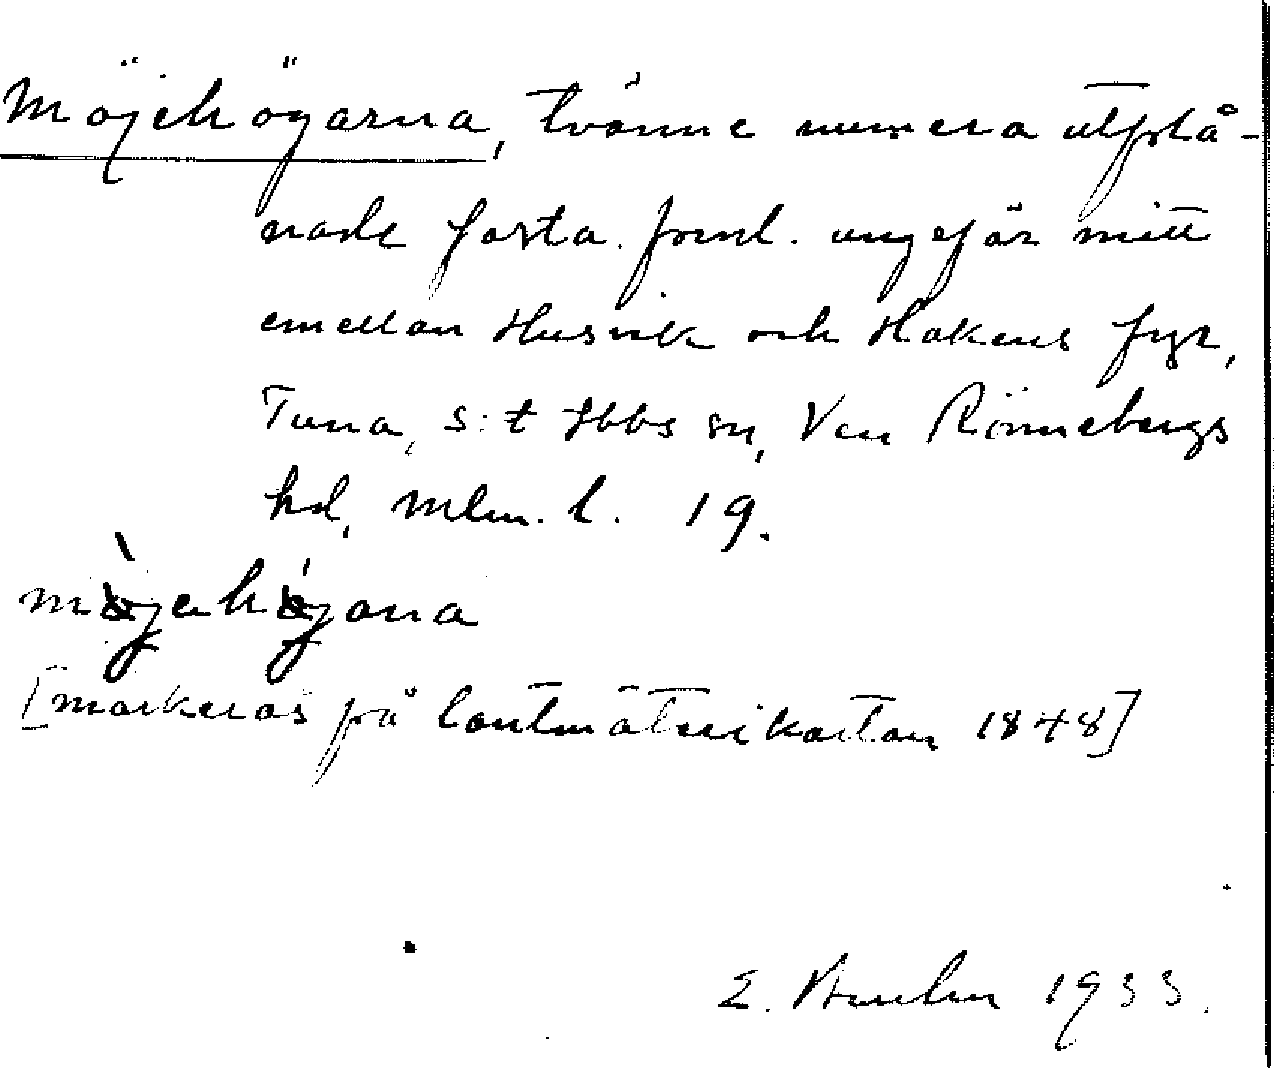 Möjehögarna, tvänne numera utplå-
nade fasta forml. ungefär mitt
emellan Husvik och Hakens fyr,
Tuna, S:t Ibbs sn, Ven Rönnebergs
hd, Mlm. l. 19.
möjehöjana
[markeras på lantmäterikartan 1848]
E. 1933.